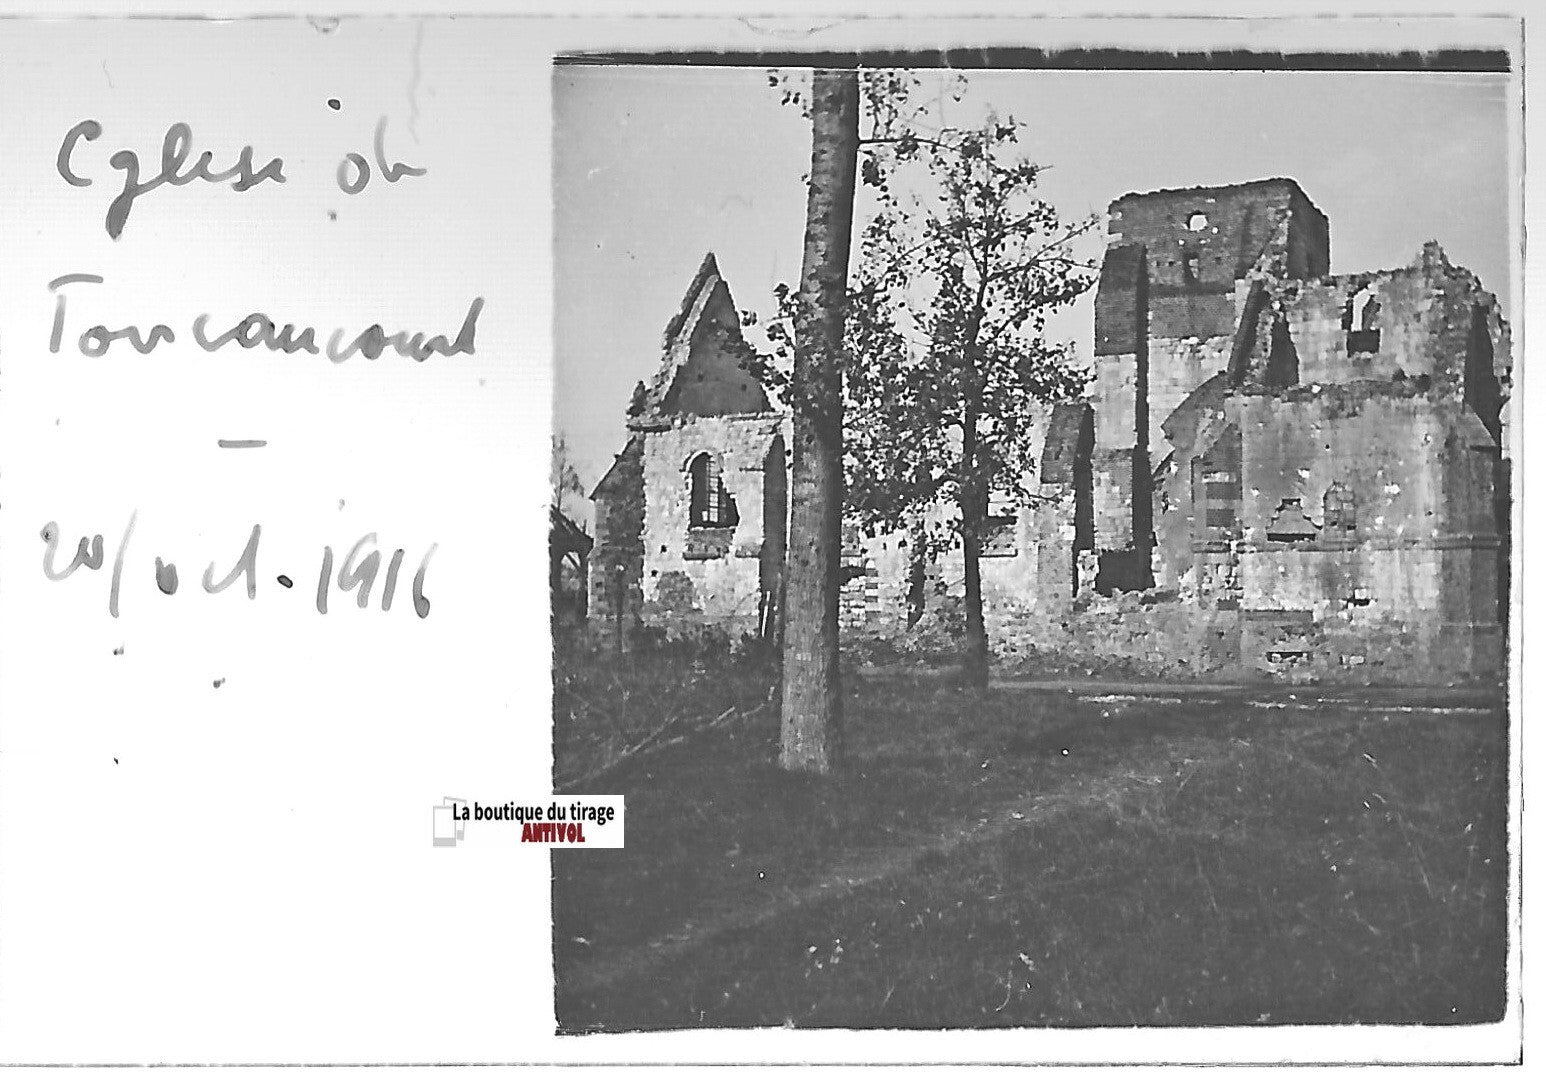 Eglise de
Foucaucourt
—
20/oct. 1916
La boutique du tirage
ANTIVOL